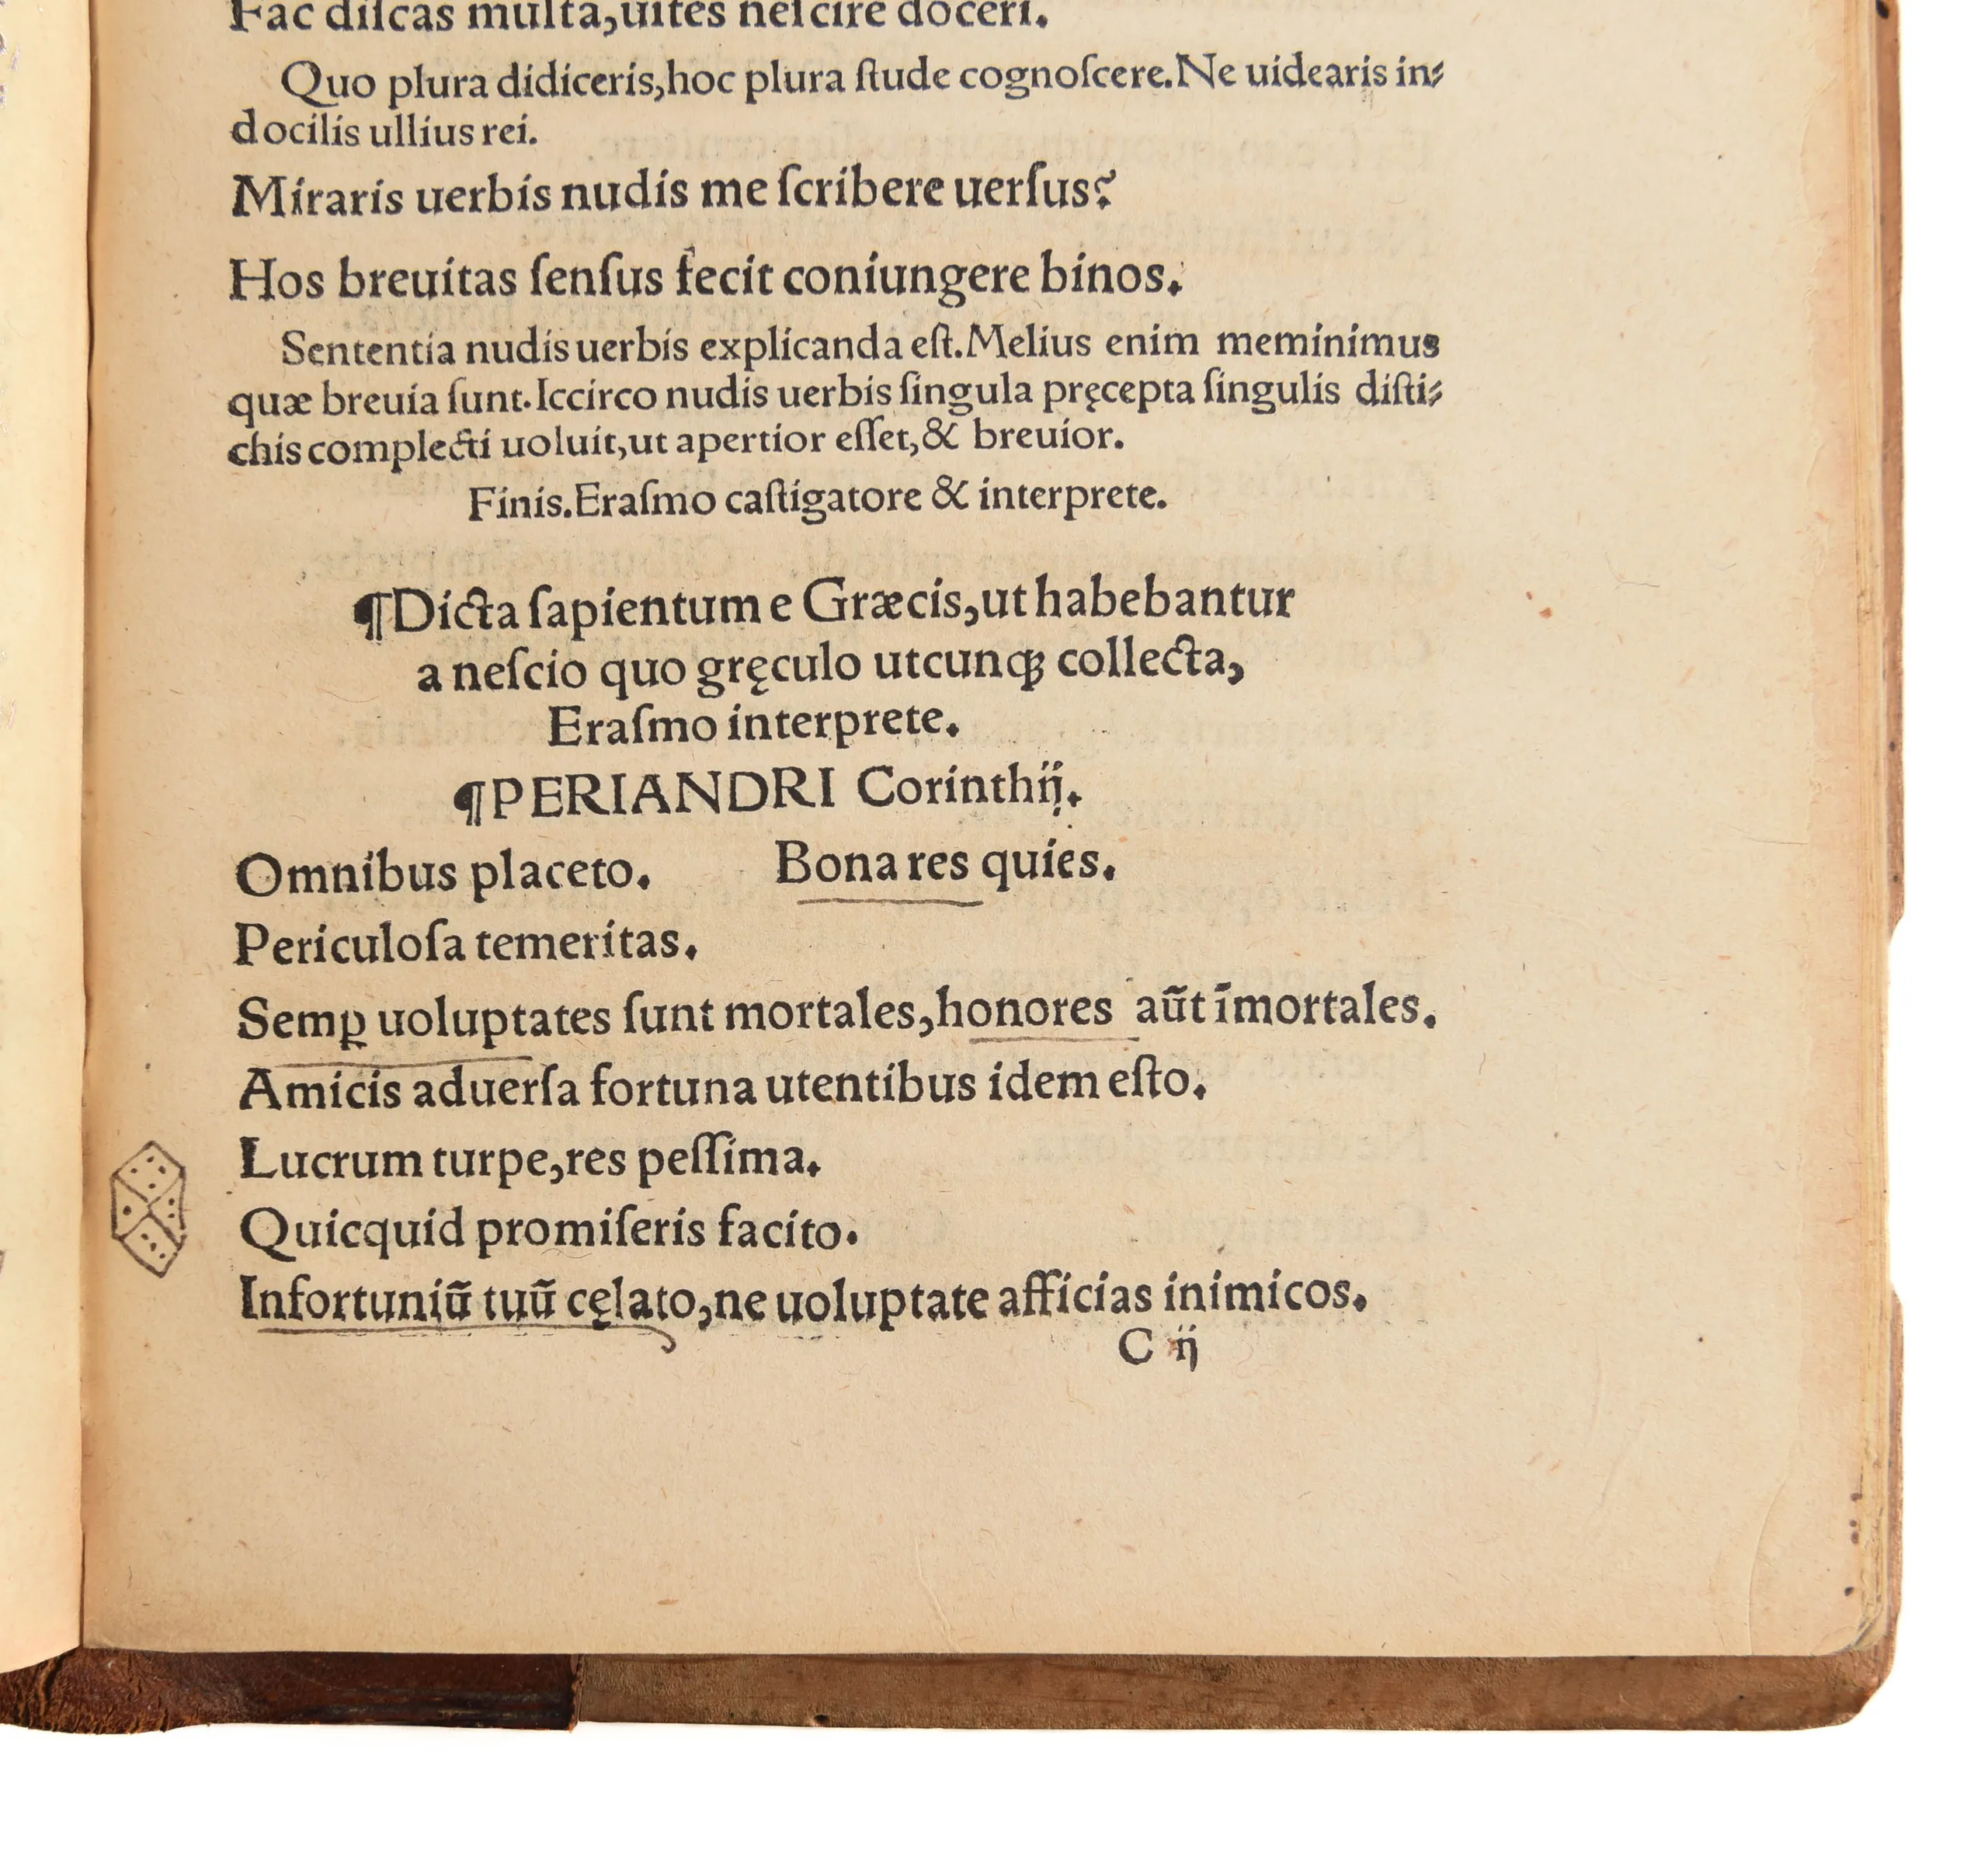 Fac diſcas multa,uites neſcire doceri.
Quo plura didiceris,hoc plura ſtude cognoſcere.Ne uidearis in⸗
docilis ullius rei.
Miraris uerbis nudis me ſcribere uerſus?
Hos breuitas ſenſus fecit coniungere binos.
Sententia nudis uerbis explicanda eſt.Melius enim meminimus
quæ breuia ſunt.Iccirco nudis uerbis ſingula pręcepta ſingulis diſti⸗
chis complecti uoluit,ut apertior eſſet,& breuior.
Finis.Eraſmo caſtigatore & interprete.
¶Dicta ſapientum e Græcis,ut habebantur
a neſcio quo gręculo utcunqꝫ collecta,
Eraſmo interprete.
¶PERIANDRI Corinthij.
Omnibus placeto. Bona res quies.
Periculoſa temeritas.
Semꝑ uoluptates ſunt mortales,honores aũt īmortales.
Amicis aduerſa fortuna utentibus idem eſto.
Lucrum turpe,res peſſima.
Quicquid promiſeris facito.
Infortuniũ tuũ cęlato,ne uoluptate afficias inimicos.
C ij